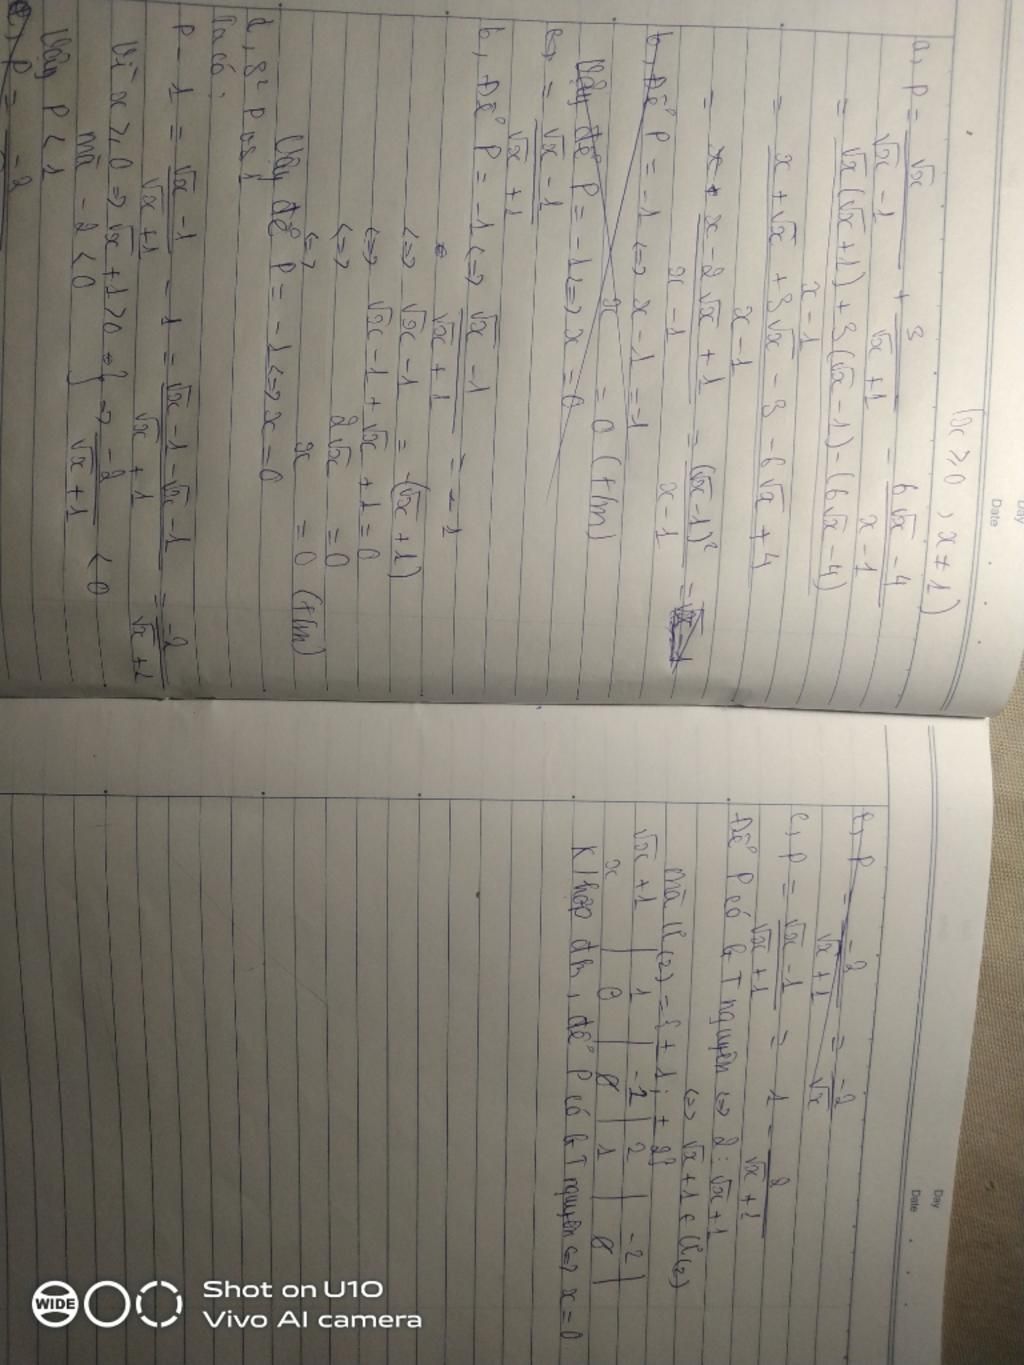 Day
Date
(x ≥ 0 , x ≠ 1)
a, P = √x / (√x - 1) + 3 / (√x + 1) - (6√x - 4) / (x - 1)
= (√x(√x + 1) + 3(√x - 1) - (6√x - 4)) / (x - 1)
= (x + √x + 3√x - 3 - 6√x + 4) / (x - 1)
= (x - 2√x + 1) / (x - 1) = (√x - 1)² / (x - 1)
b, Để P = -1 <=> x - 1 = -1
x = 0 (t/m)
Vậy để P = -1 <=> x = 0
= (√x - 1) / (√x + 1)
b, Để P = -1 <=> (√x - 1) / (√x + 1) = -1
<=> √x - 1 = -(√x + 1)
<=> √x - 1 + √x + 1 = 0
<=> 2√x = 0
<=> x = 0 (t/m)
Vậy để P = -1 <=> x = 0
d, S² P vs 1
Ta có:
P - 1 = (√x - 1) / (√x + 1) - 1 = (√x - 1 - √x - 1) / (√x + 1) = -2 / (√x + 1)
Vì x ≥ 0 => √x + 1 > 0 } => -2 / (√x + 1) < 0
mà -2 < 0
Vậy P < 1
P = -2
Day
Date
e, P = -2 / (√x + 1) = -2 / √x
c, P = (√x - 1) / (√x + 1) = 1 - 2 / (√x + 1)
Để P có GT nguyên <=> 2 ⋮ √x + 1
<=> √x + 1 ∈ Ư(2)
mà Ư(2) = {± 1; ± 2}
√x + 1 | 1 | -1 | 2 | -2 |
x | 0 | ∅ | 1 | ∅ |
K/hợp đk, để P có GT nguyên <=> x = 0
WIDE
Shot on U10
Vivo AI camera